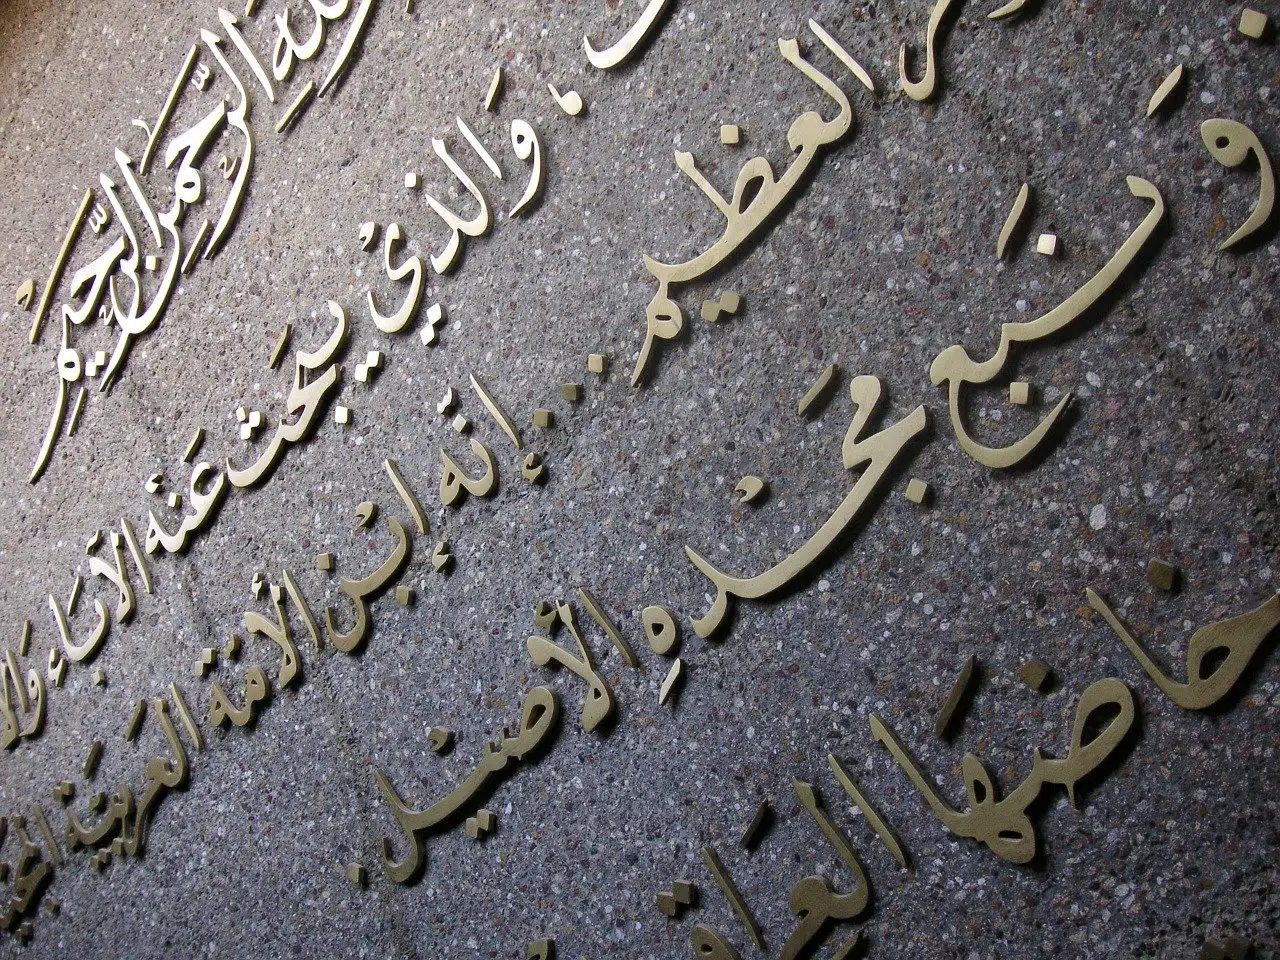 الله الرَّحمٰنِ الرَّحيمِ
وَالذيْ يبحَث عَنهُ الآبَاء
العظيم ... إنّهُ ابْن الأمَة العَربيَّة
وَنَبع مَجْدِهِ الأصيْل.
خاضهَا